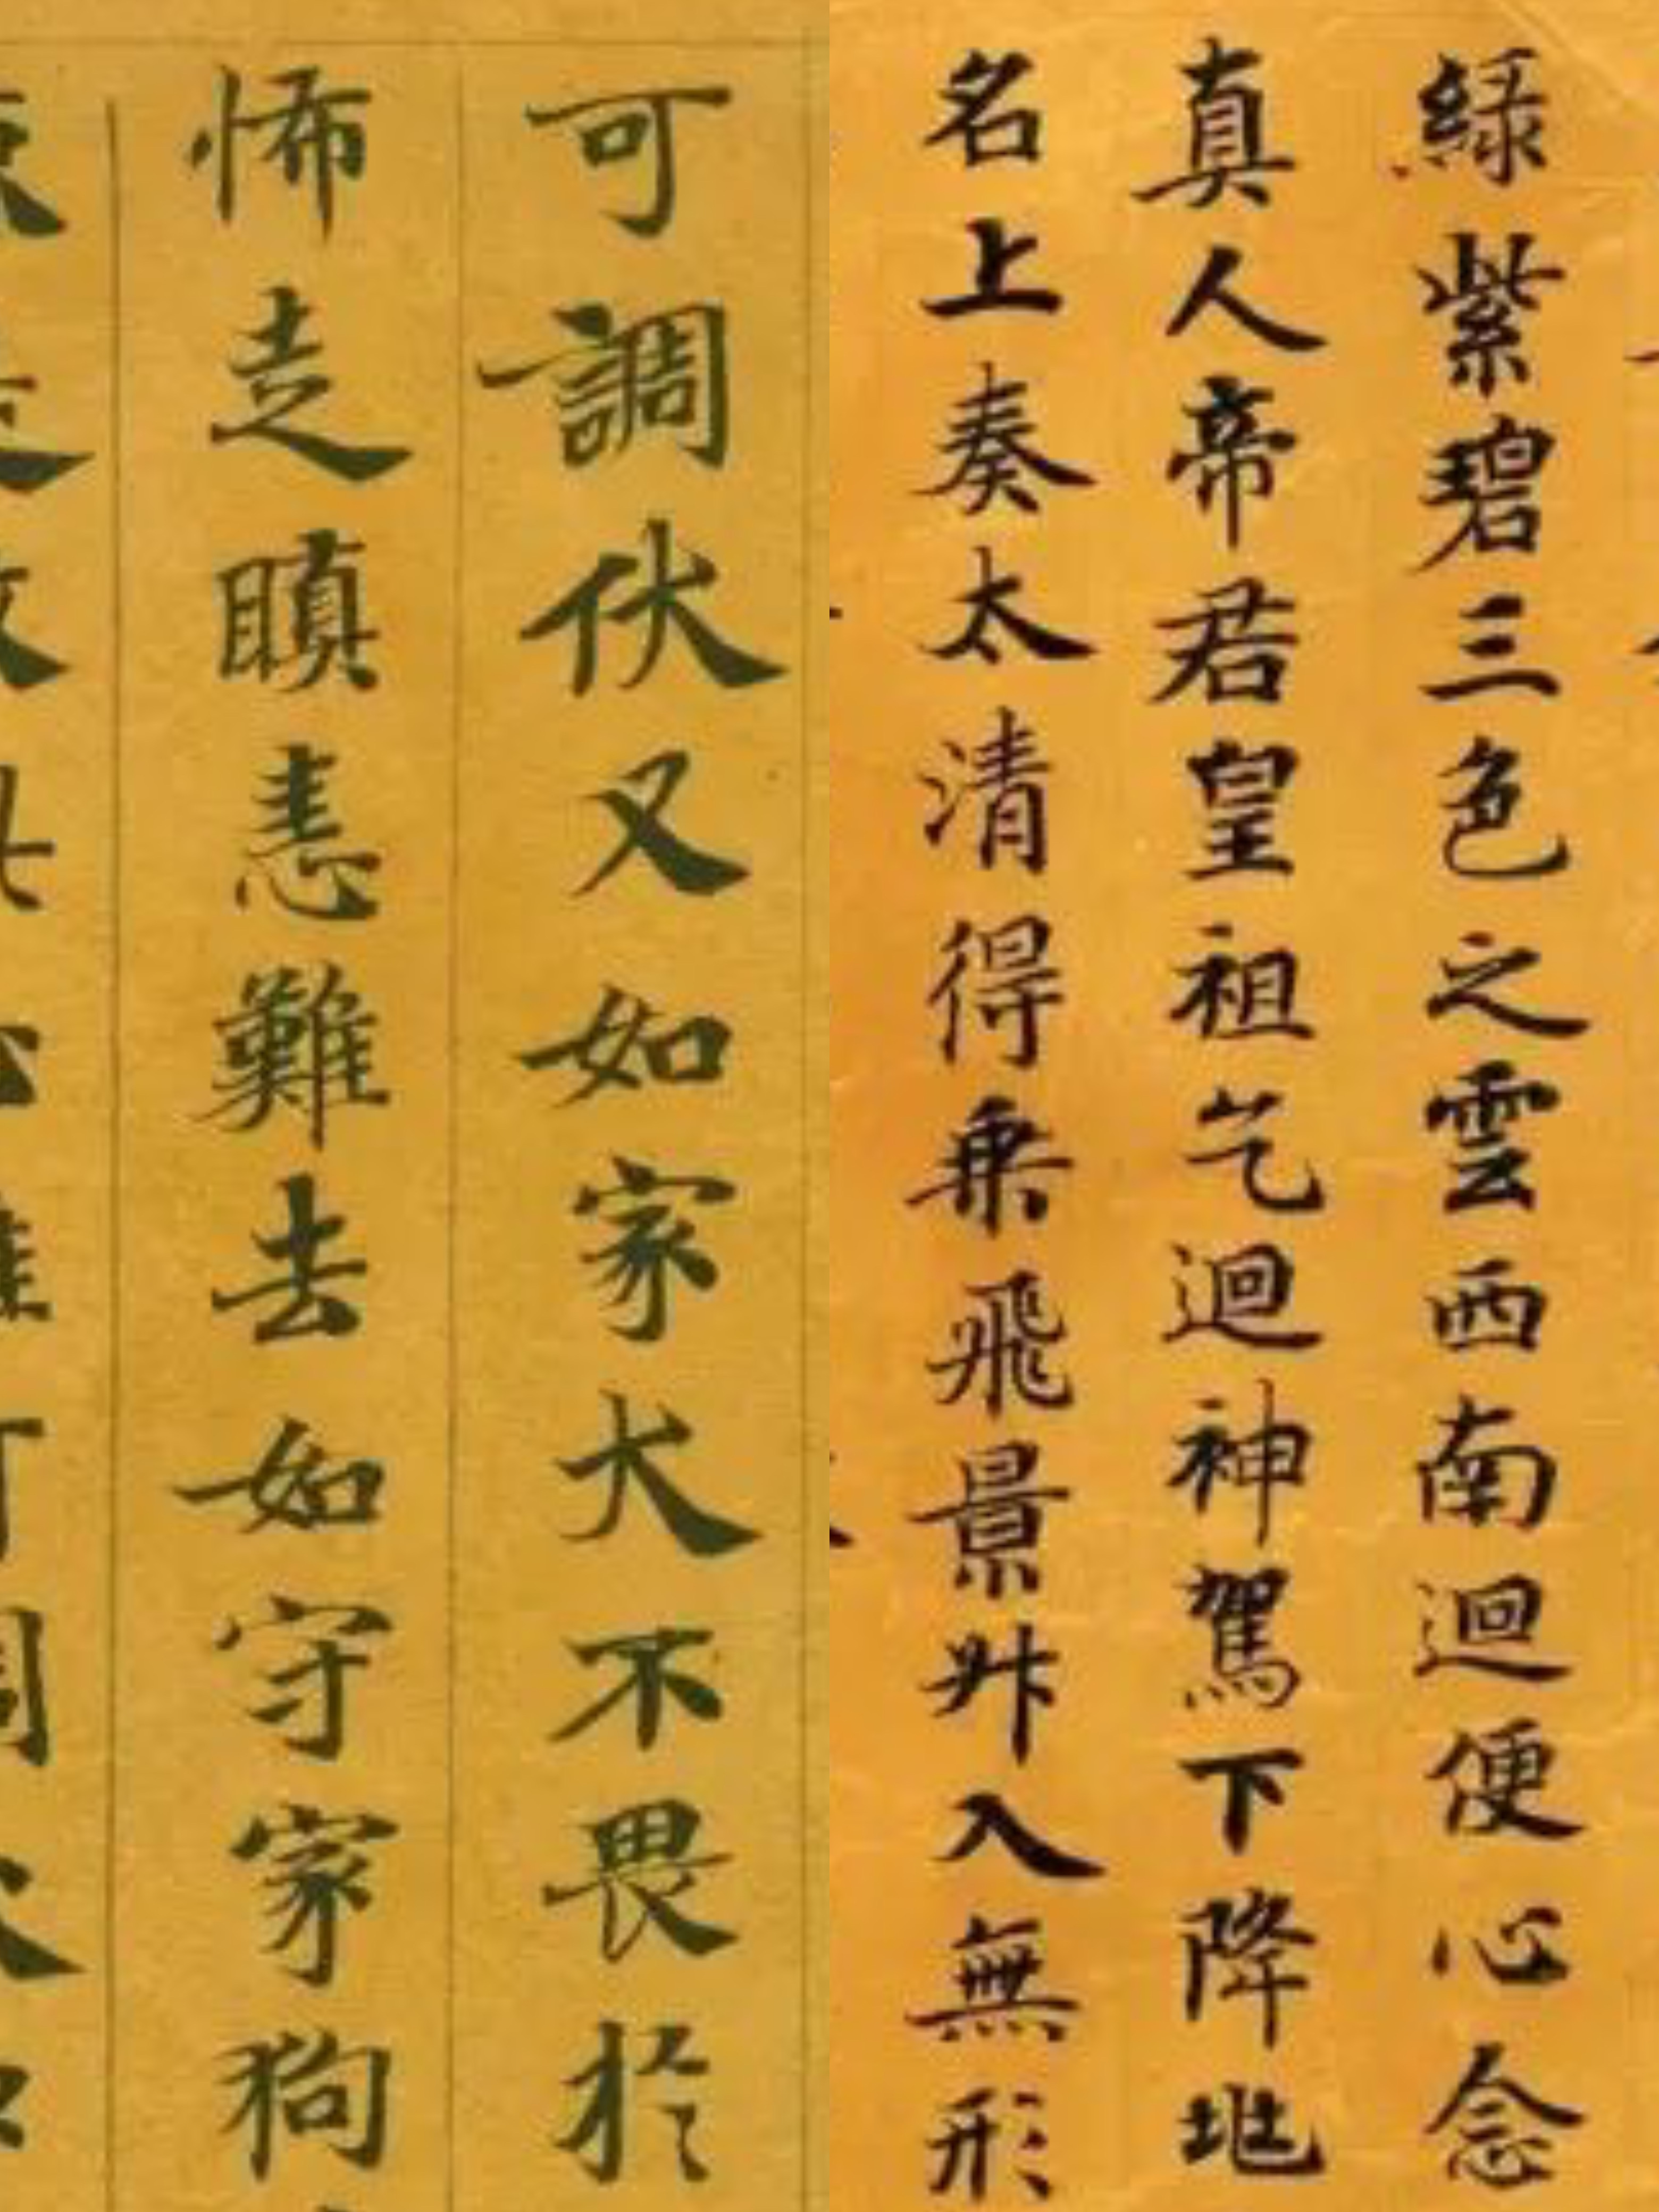 綠紫碧三色之雲西南迴便心念
真人帝君皇祖乞迴神駕下降地
名上奏太清得乗飛景升入無形
可調伏又如家犬不畏於
怖走瞋恚難去如守家狗